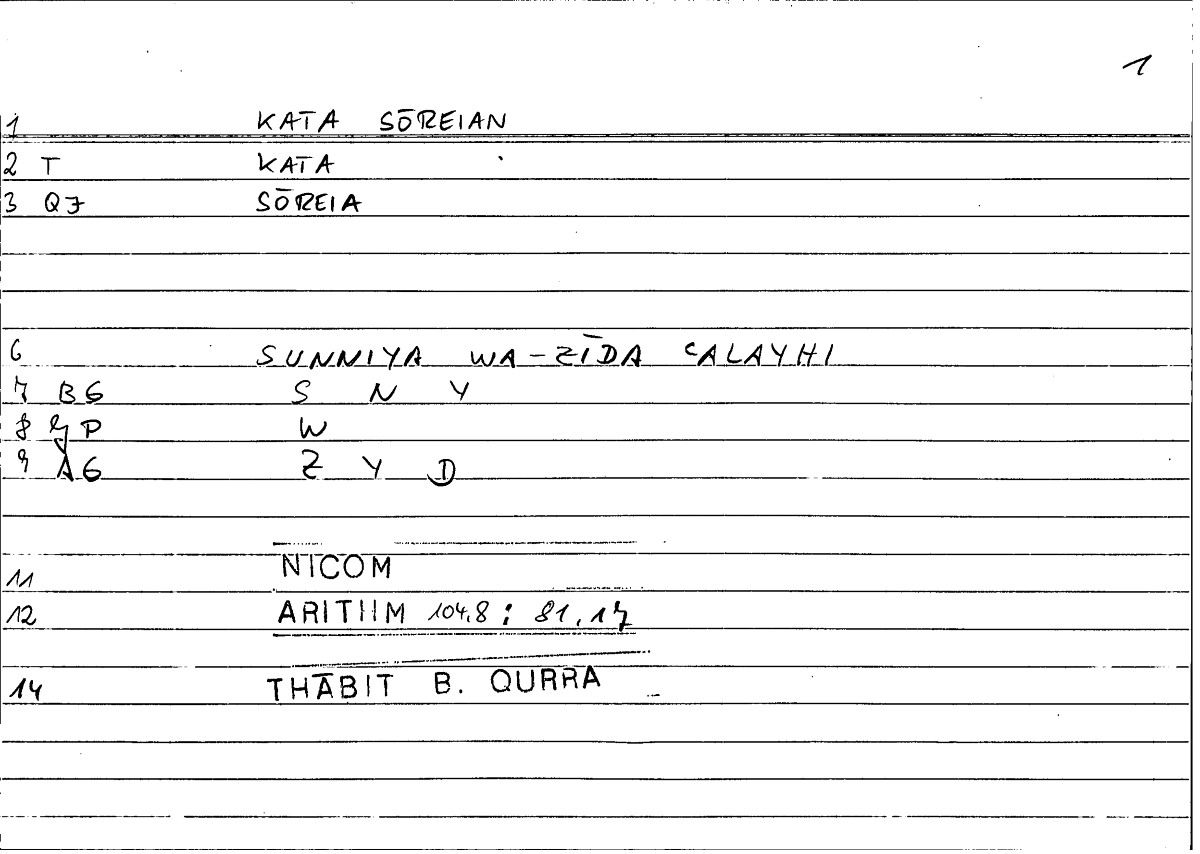 1
1 KATA SŌREIAN
2 T KATA
3 QJ SŌREIA
6 SUNNIYA WA-ZĪDA ʿALAYHI
7 BG S N Y
8 P W
9 AG Z Y D
11 NICOM
12 ARITIIM 104,8 : 81,17
14 THĀBIT B. QURRA